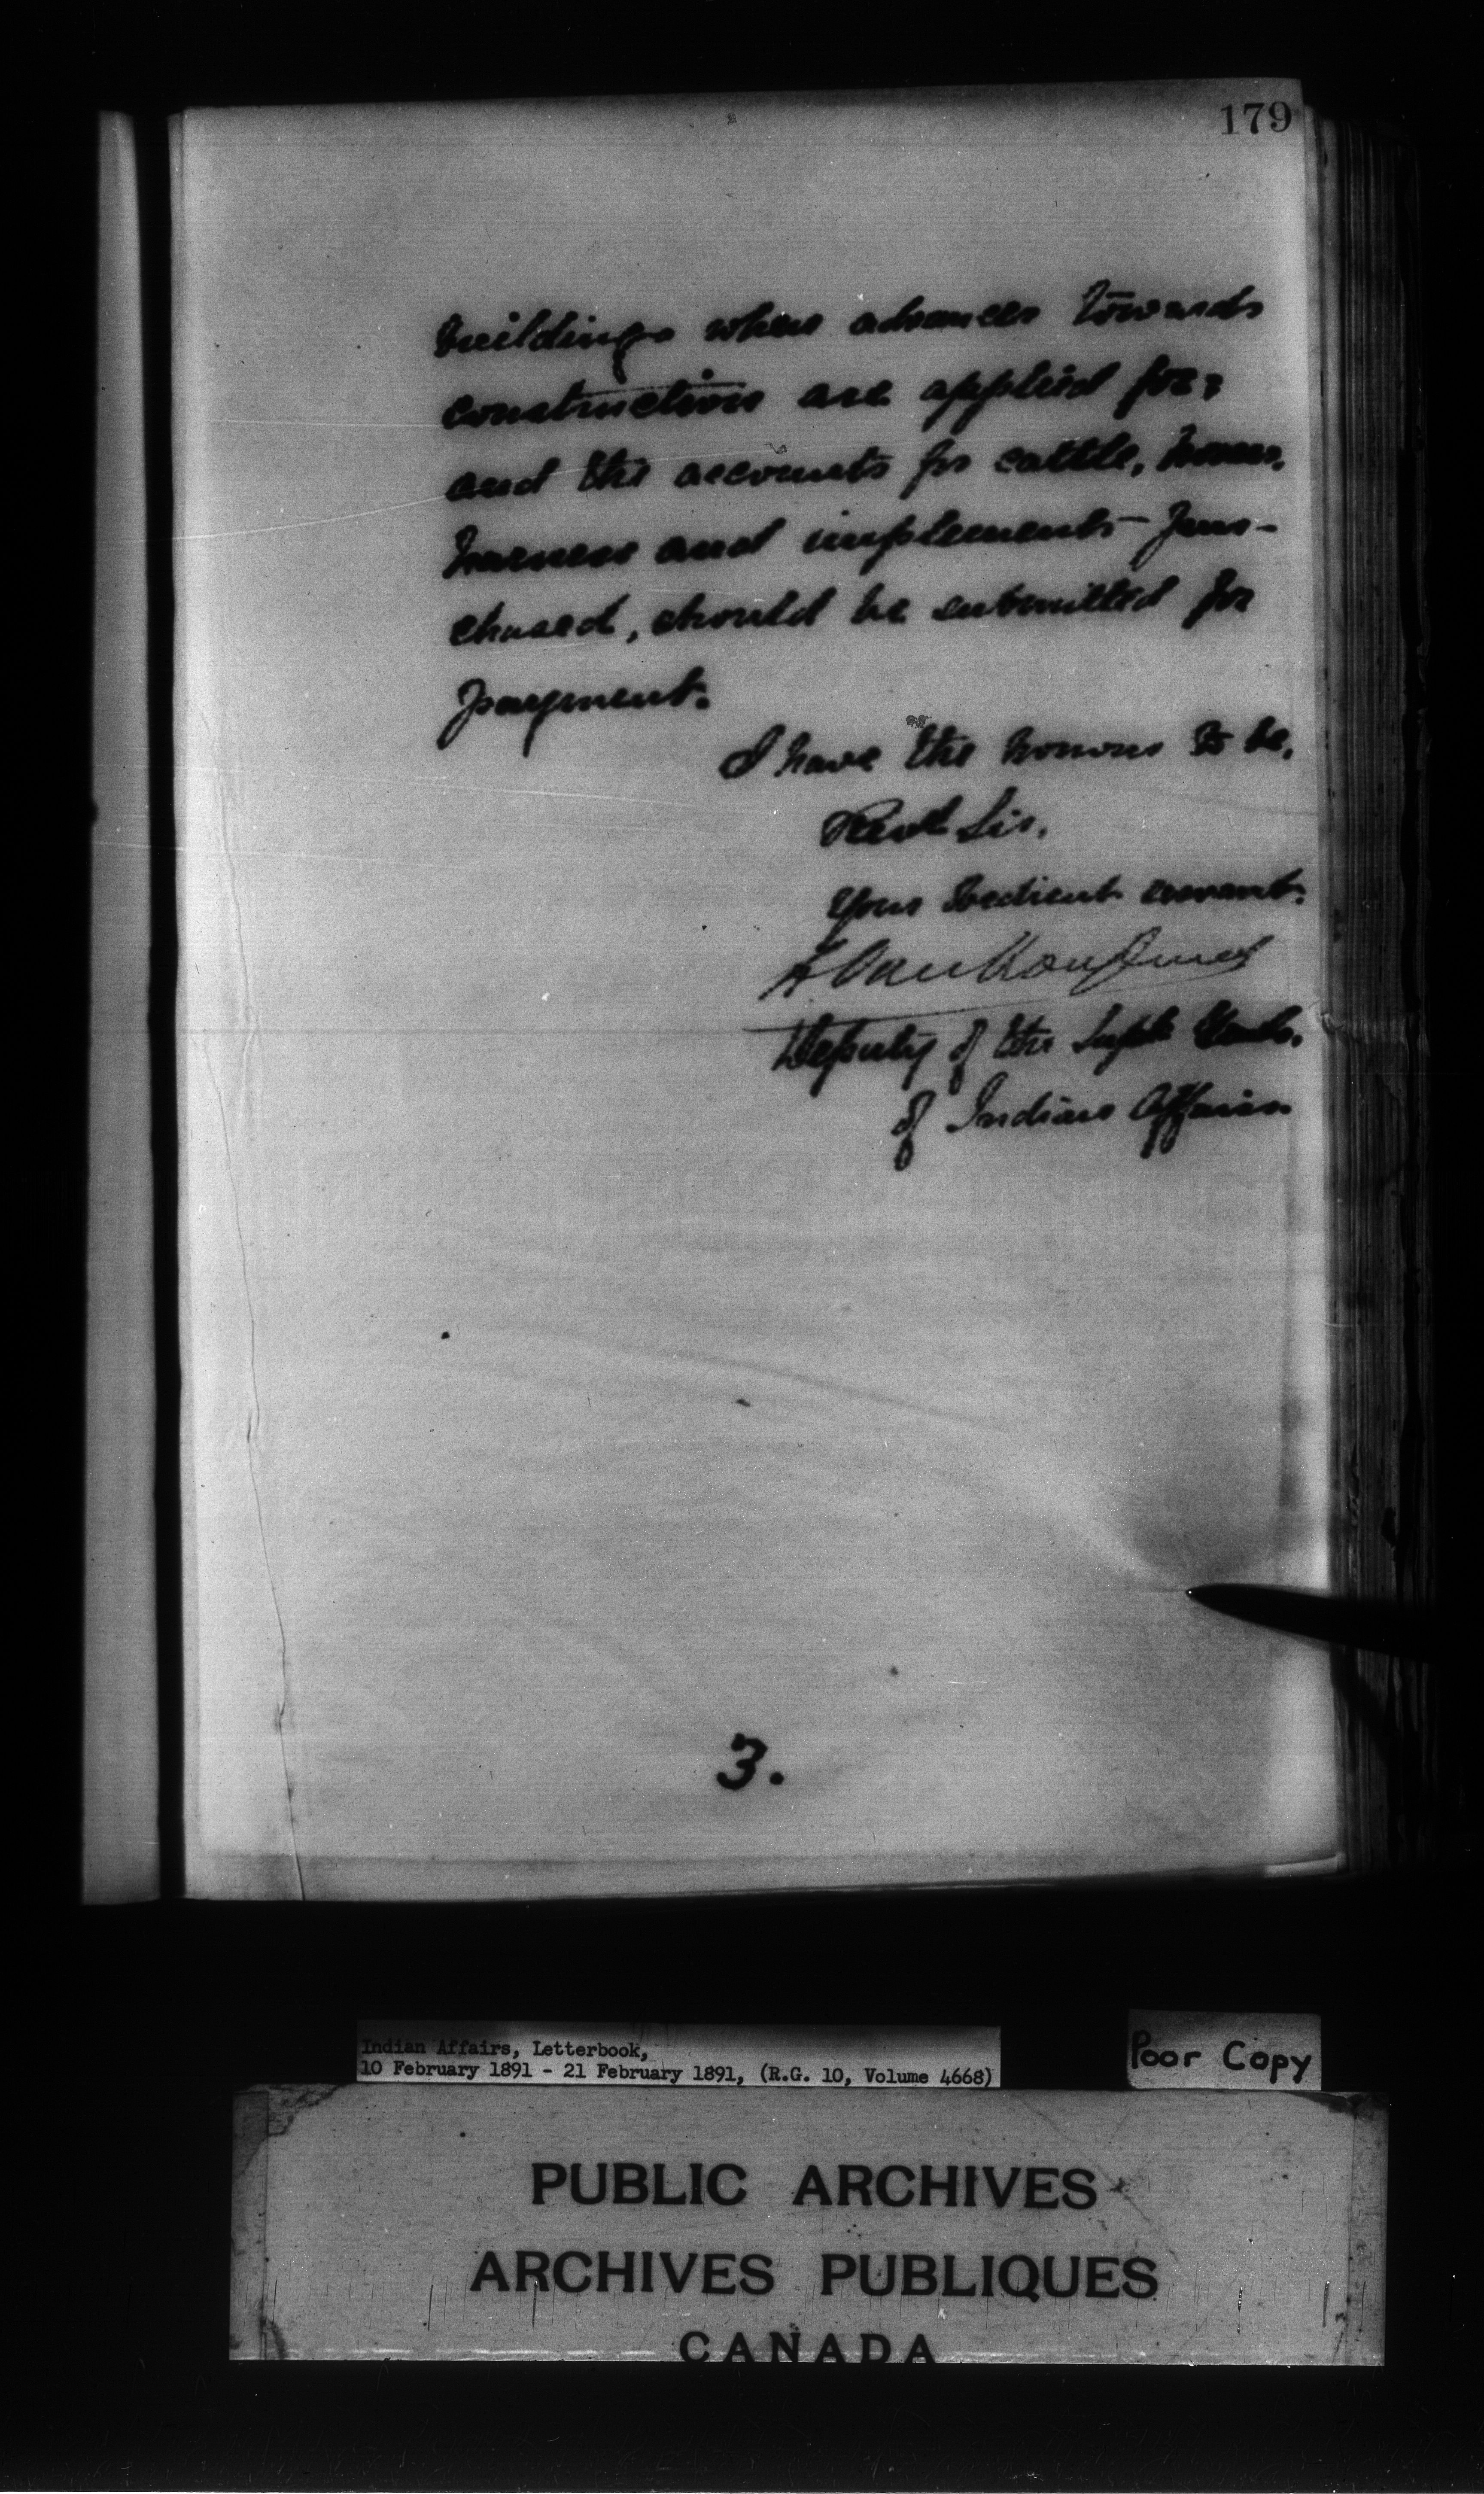 179
buildings when advances towards
construction are applied for;
and the accounts for cattle, horses,
harness and implements pur-
chased, should be submitted for
payment.
I have the honour to be,
Revd Sir,
Your obedient servant.
L Vankoughnet
Deputy of the Supt Genl.
of Indian Affairs
3.
Indian Affairs, Letterbook,
10 February 1891 - 21 February 1891, (R.G. 10, Volume 4668)
Poor Copy
PUBLIC ARCHIVES
ARCHIVES PUBLIQUES
CANADA